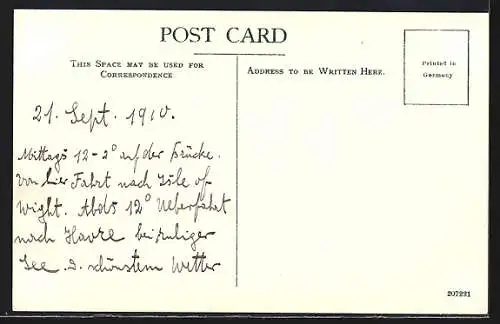 POST CARD
THIS SPACE MAY BE USED FOR
CORRESPONDENCE
ADDRESS TO BE WRITTEN HERE.
Printed in
Germany
21. Sept. 1910.
Mittags 12-2° auf der Brücke.
Von hier Fahrt nach Isle of
Wight. Abds 12° Ueberfahrt
nach Havre bei ruhiger
See u. schönstem Wetter
207221